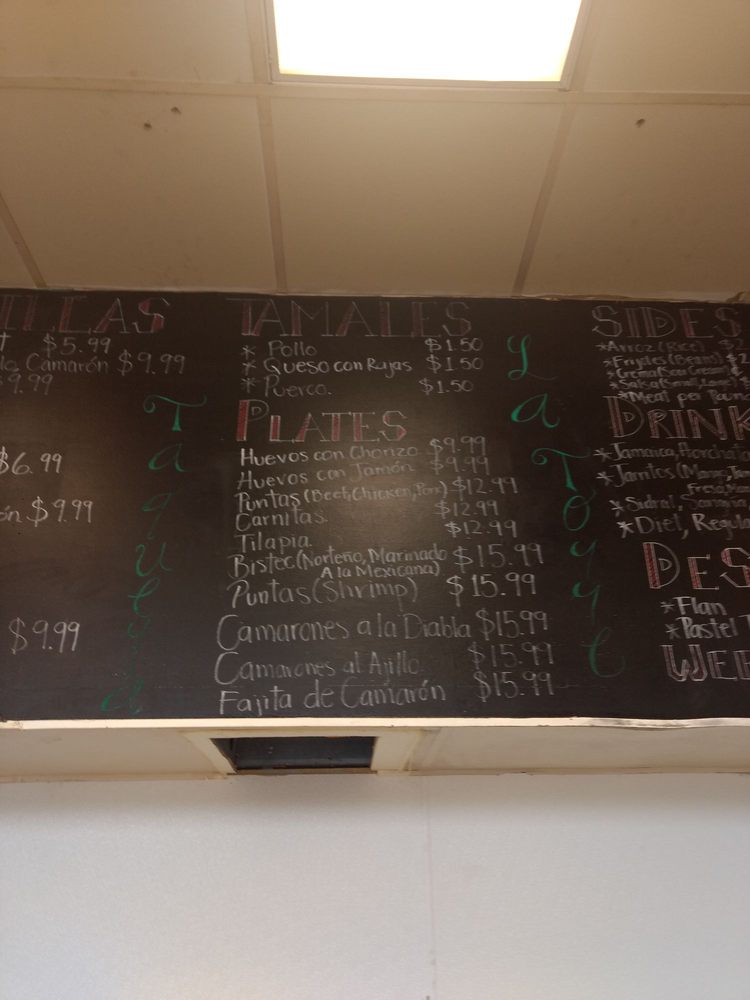 ILLAS
$5.99
Camarón $9.99
9.99
$6.99
ón $9.99
$9.99
Taqueria
TAMALES
* Pollo $1.50
* Queso con Rajas $1.50
* Puerco. $1.50
PLATES
Huevos con Chorizo $9.99
Huevos con Jamón $9.99
Puntas (Beef, Chicken, Porr) $12.99
Carnitas $12.99
Tilapia $12.99
Bistec (Norteño, Marinado $15.99
A la Mexicana)
Puntas (Shrimp) $15.99
Camarones a la Diabla $15.99
Camarones al Ajillo $15.99
Fajita de Camarón $15.99
La Toyye
SIDES
*Arroz (Rice) $2
*Frijoles (Beans) $2
*Crema (Sour Cream) $
*Salsa (Small, Large) $
*Meat per Poun
DRINK
*Jamaica, Horchata
*Jarritos (Mango, Tam
Fresa,
*Sidral,
*Diet, Regul
DES
*Flan
*Pastel T
WEE